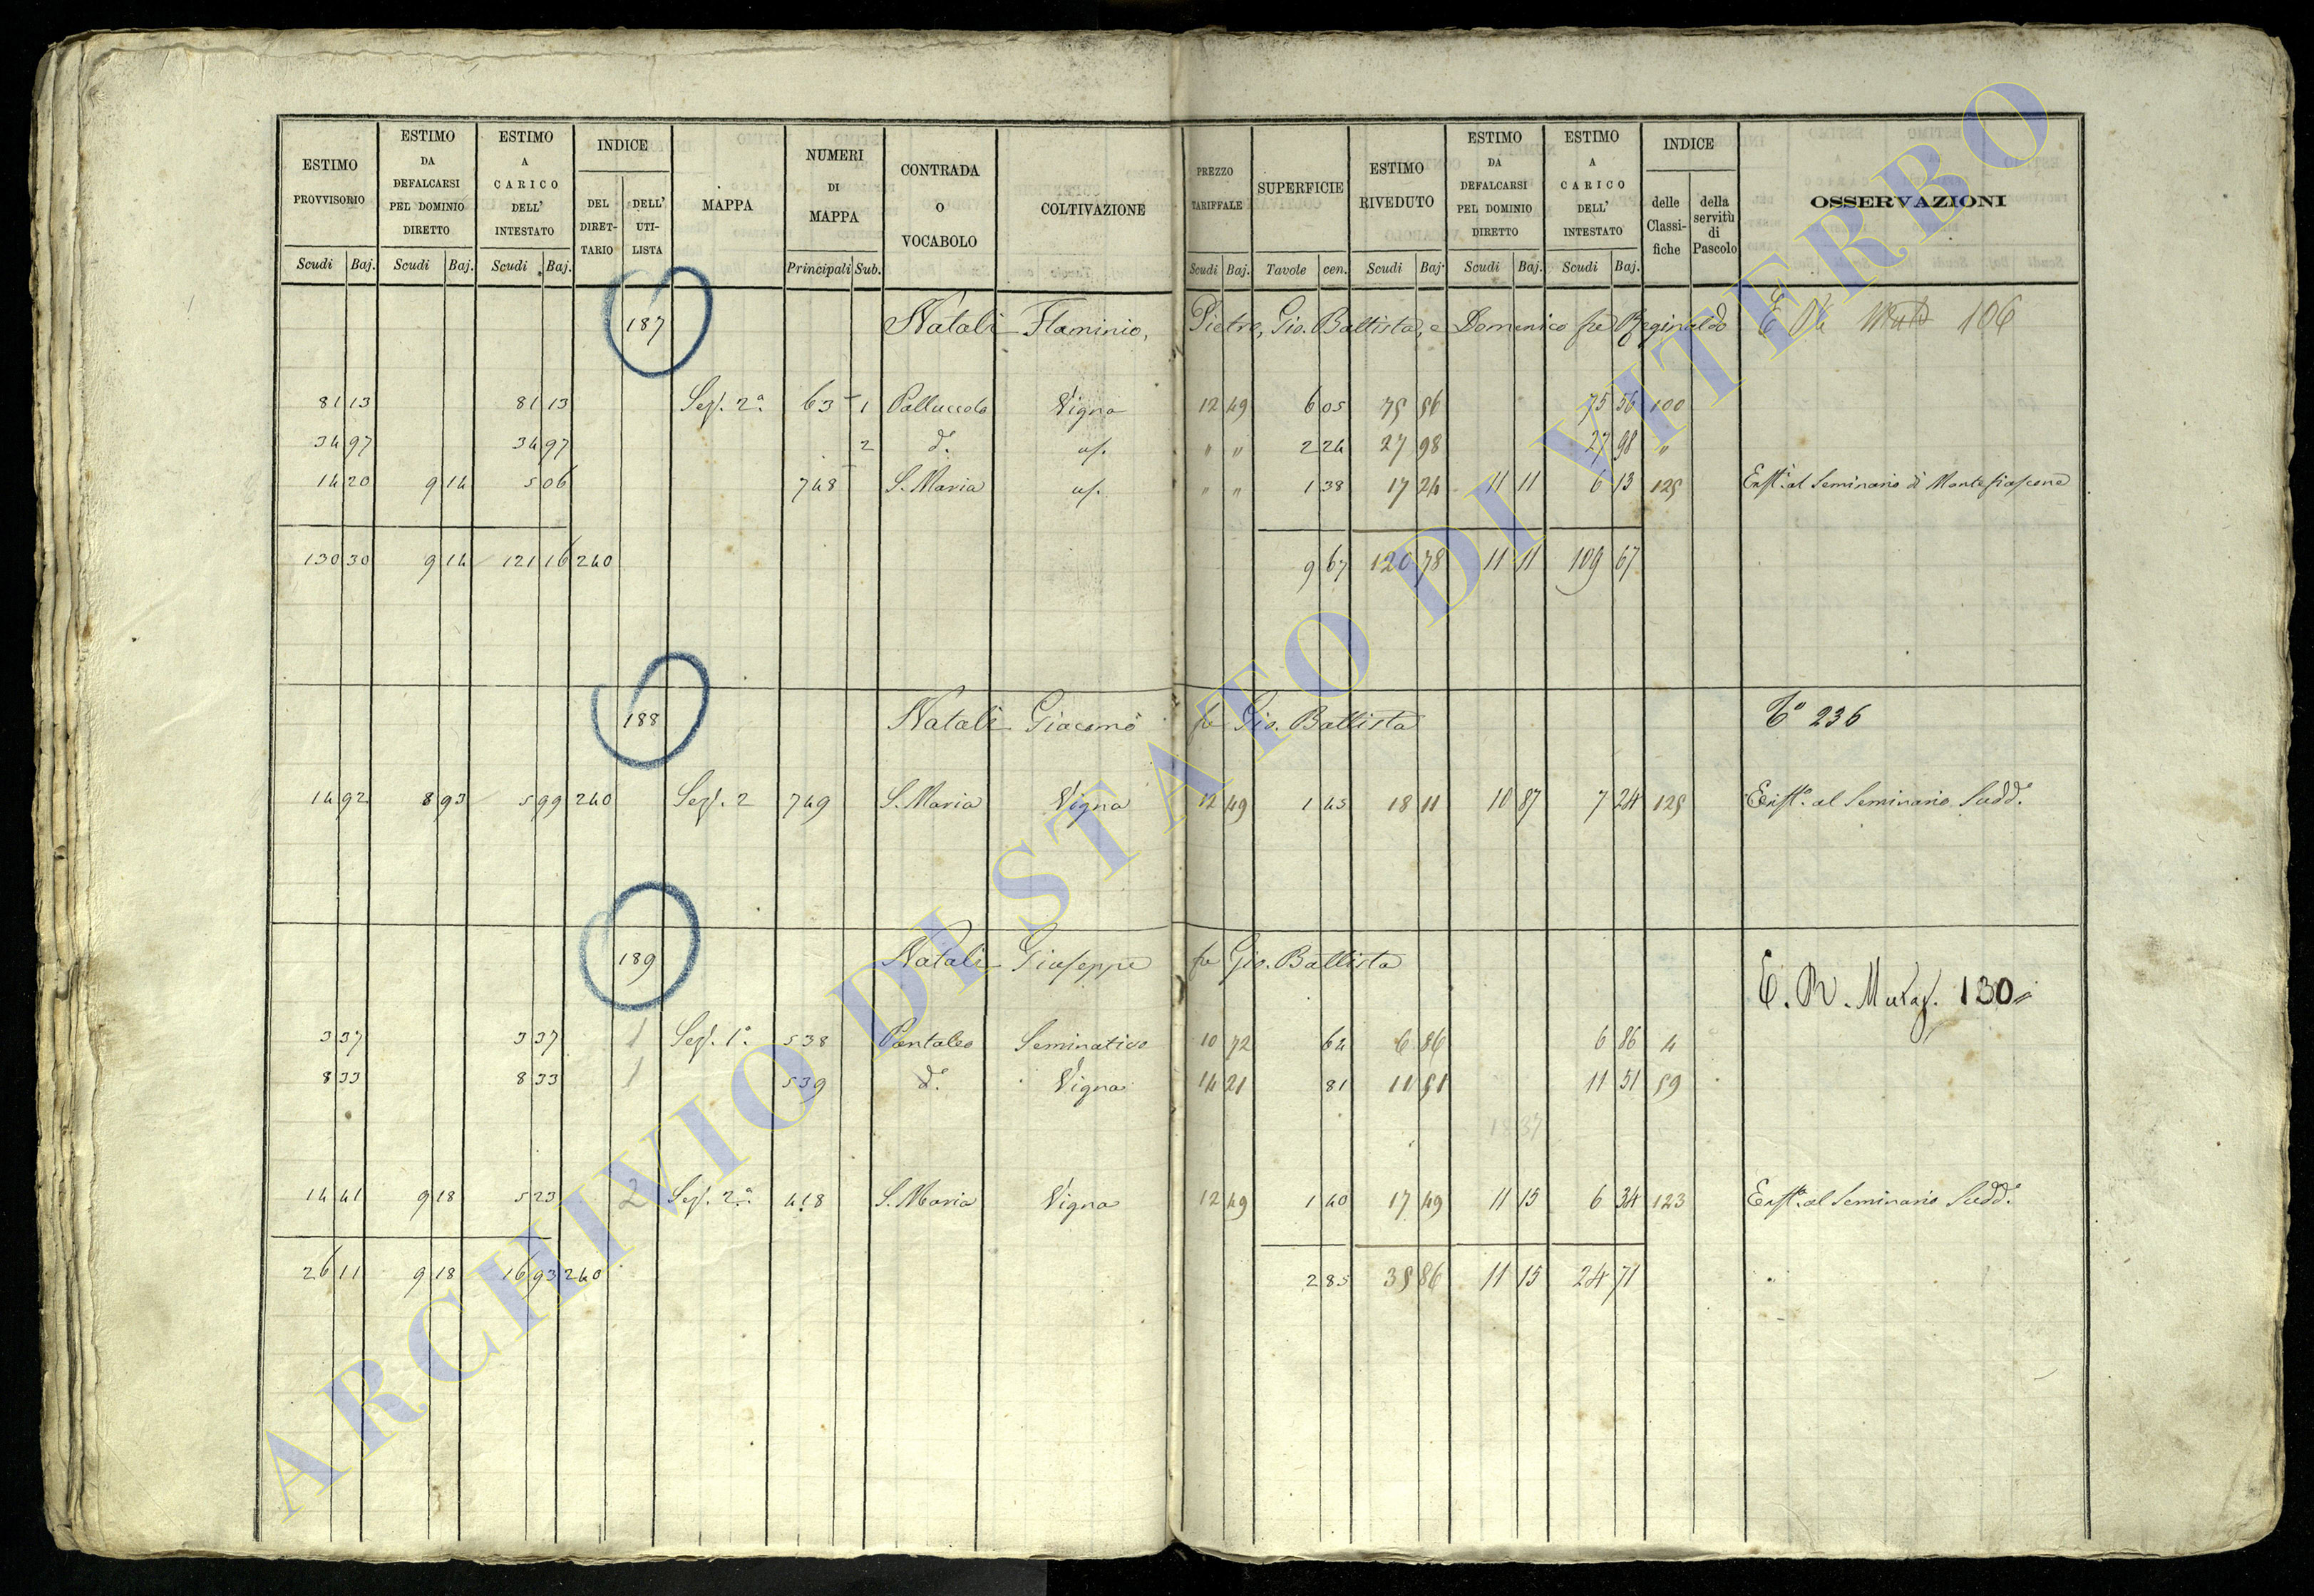 ESTIMO PROVVISORIO
ESTIMO DA DEFALCARSI PEL DOMINIO DIRETTO
ESTIMO A CARICO DELL' INTESTATO
INDICE
DEL DIRET-TARIO
DELL' UTI-LISTA
MAPPA
NUMERI DI MAPPA
CONTRADA O VOCABOLO
COLTIVAZIONE
PREZZO TARIFFALE
SUPERFICIE
ESTIMO RIVEDUTO
ESTIMO DA DEFALCARSI PEL DOMINIO DIRETTO
ESTIMO A CARICO DELL' INTESTATO
INDICE
delle Classi-fiche
della servitù di Pascolo
OSSERVAZIONI
Scudi Baj. Scudi Baj. Scudi Baj. Principali Sub. Scudi Baj. Tavole cen. Scudi Baj. Scudi Baj. Scudi Baj.
187 Natali Flaminio, Pietro, Gio. Battista, e Domenico fu Reginaldo 106
81 13 81 13 Sez. 2a. 63 1 Palluccola Vigna 12 49 6 05 75 56 75 56 100
34 97 34 97 2 do. us. " " 2 24 27 98 27 98 "
14 20 9 14 5 06 748 S. Maria us. " " 1 38 17 24 11 11 6 13 125 Enfta. al Seminario di Montefiascone
130 30 9 14 121 16 240 9 67 120 78 11 11 109 67
188 Natali Giacomo fu Gio. Battista 236
14 92 8 93 5 99 240 Sez. 2 749 S. Maria Vigna 12 49 1 45 18 11 10 87 7 24 125 Enfta. al Seminario Sudd.
189 Natali Giuseppe fu Gio. Battista
E. R. 130
3 37 3 37 1 Sez. 1a. 538 Pantaleo Seminativo 10 72 64 6 86 6 86 4
8 33 8 33 1 539 do. Vigna 14 21 81 11 51 11 51 59
18 37
14 41 9 18 5 23 2 Sez. 2a. 418 S. Maria Vigna 12 49 1 40 17 49 11 15 6 34 123 Enfta. al Seminario Sudd.
26 11 9 18 16 93 240 2 85 35 86 11 15 24 71
ARCHIVIO DI STATO DI VITERBO